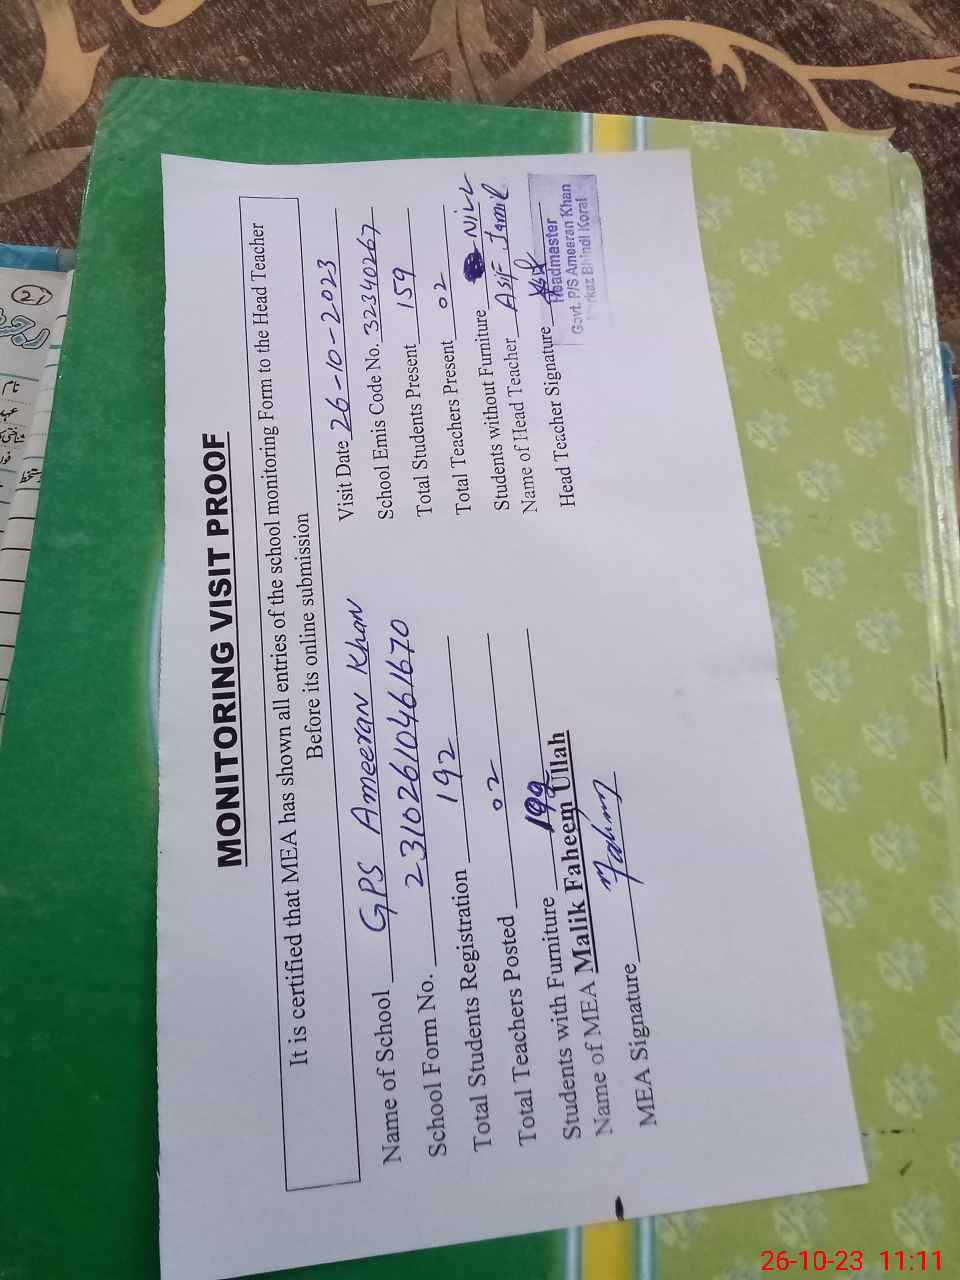 MONITORING VISIT PROOF
It is certified that MEA has shown all entries of the school monitoring Form to the Head Teacher
Before its online submission
Name of School GPS Ameeran Khan
Visit Date 26-10-2023
School Form No. 23102610461670
School Emis Code No. 32340267
Total Students Registration 192
Total Students Present 159
Total Teachers Posted 02
Total Teachers Present 02
Students with Furniture 192
Students without Furniture NILL
Name of MEA Malik Faheem Ullah
Name of Head Teacher Asif Jamil
MEA Signature
Head Teacher Signature
Headmaster
Govt. P/S Ameeran Khan
Markaz Bhindi Korai
21
نام
26-10-23 11:11